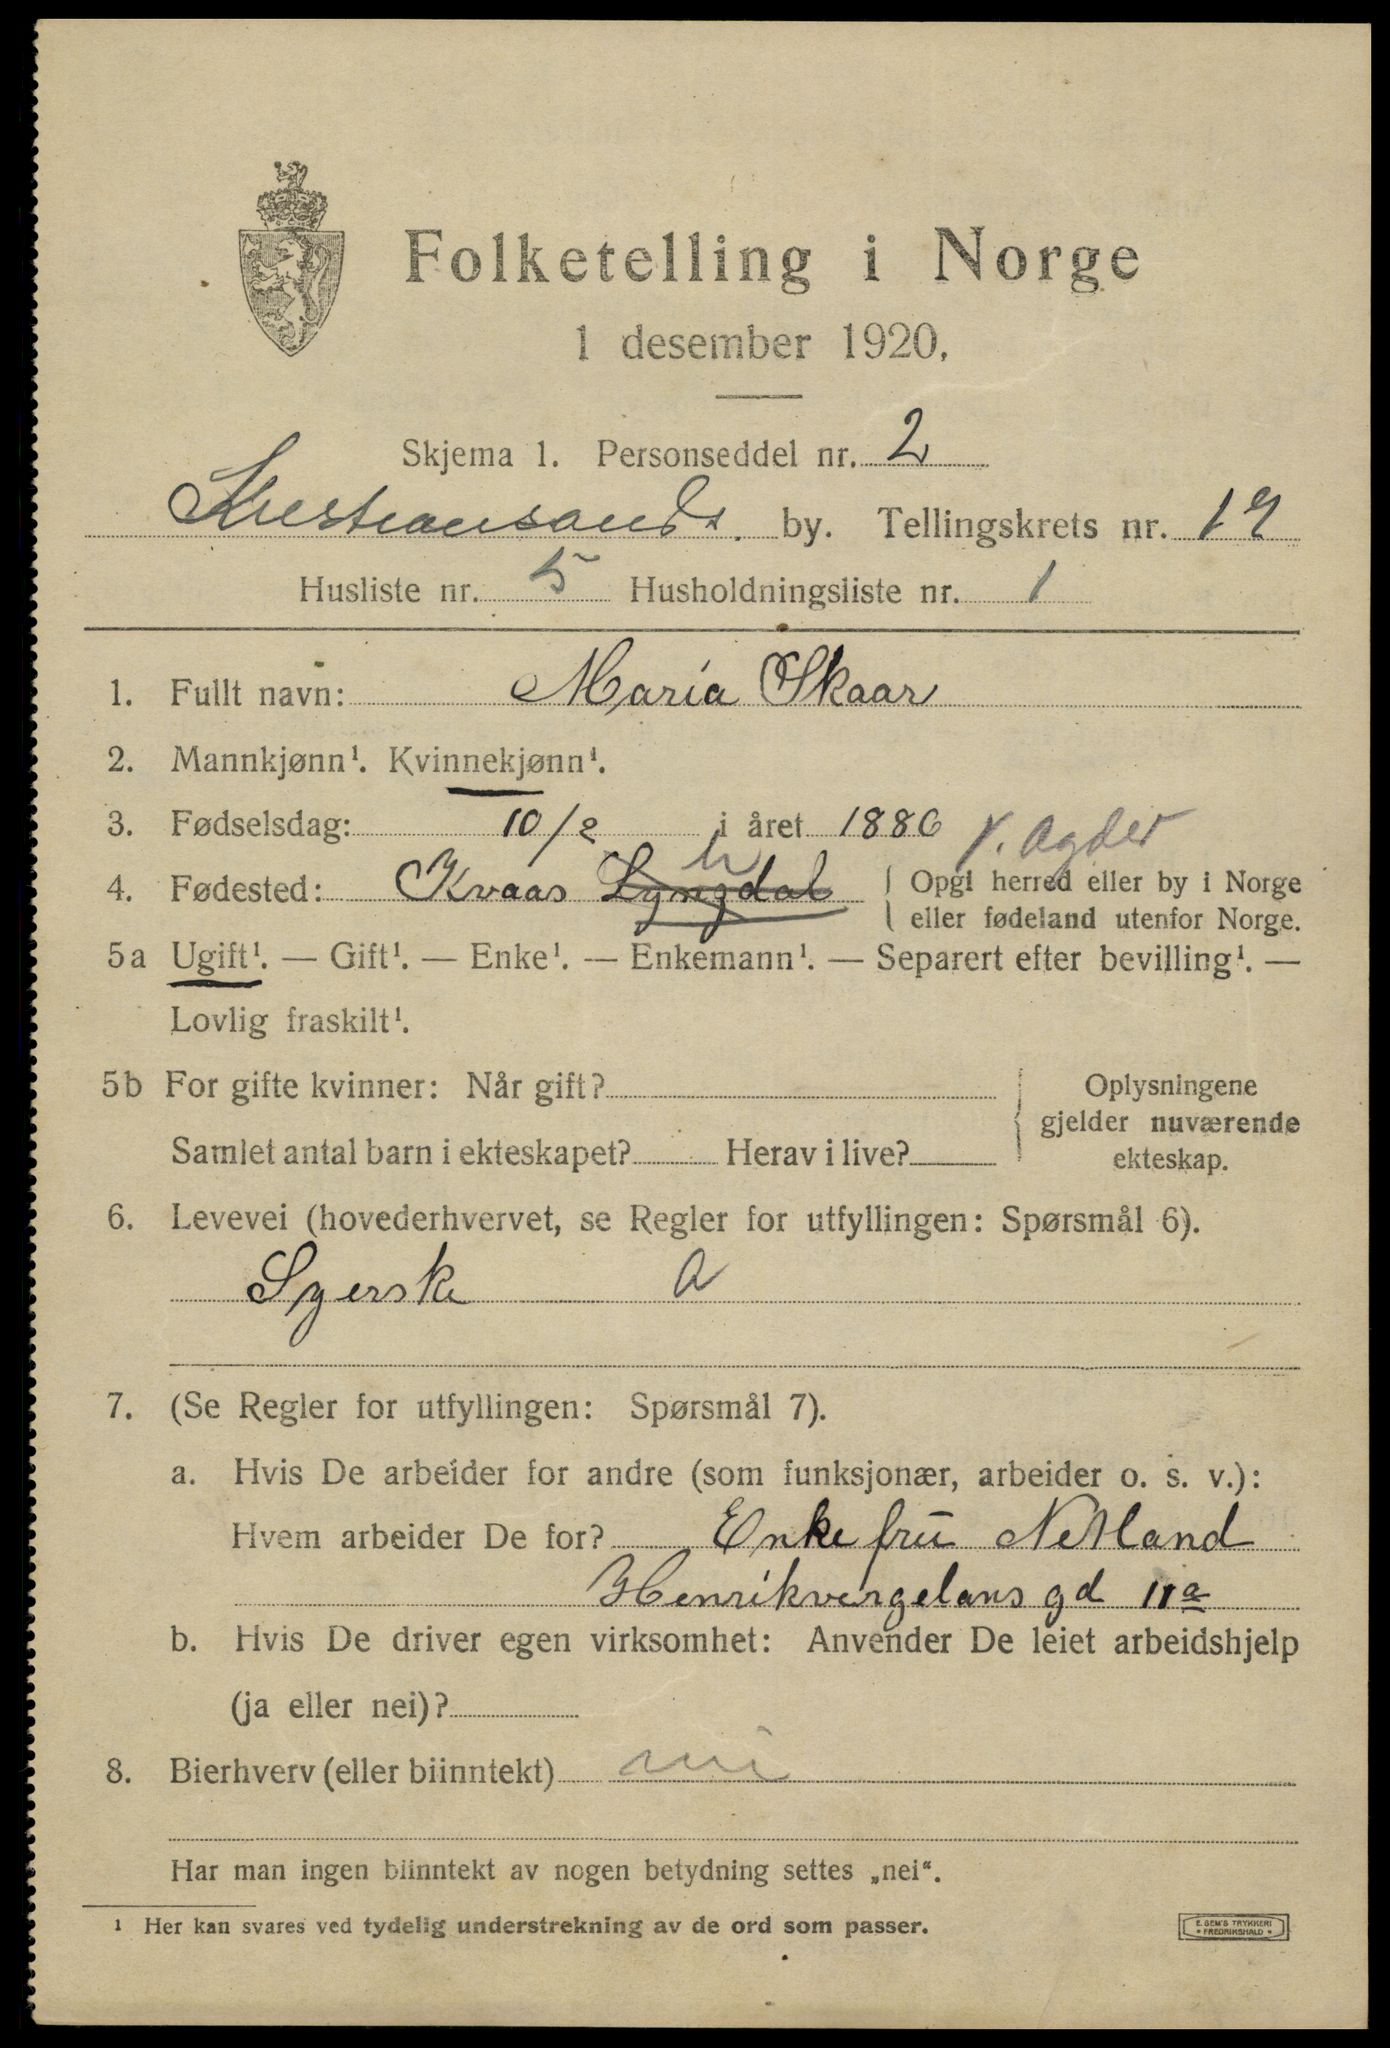 Folketelling i Norge
1 desember 1920.
Skjema 1. Personseddel nr. 2
Kristiansands by. Tellingskrets nr. 17
Husliste nr. 5 Husholdningsliste nr. 1
1. Fullt navn: Maria Skaar
2. Mannkjønn¹. Kvinnekjønn¹.
3. Fødselsdag: 10/2 i året 1886 V. Agder
4. Fødested: Kvaas h Lyngdal { Opgi herred eller by i Norge
eller fødeland utenfor Norge.
5a Ugift¹. — Gift¹. — Enke¹. — Enkemann¹. — Separert efter bevilling¹. —
Lovlig fraskilt¹.
5b For gifte kvinner: Når gift? Oplysningene
gjelder nuværende
Samlet antal barn i ekteskapet? Herav i live? ekteskap.
6. Levevei (hovederhvervet, se Regler for utfyllingen: Spørsmål 6).
Syerske a
7. (Se Regler for utfyllingen: Spørsmål 7).
a. Hvis De arbeider for andre (som funksjonær, arbeider o. s. v.):
Hvem arbeider De for? Enke fru Netland
Henrikvergelans gd 11a
b. Hvis De driver egen virksomhet: Anvender De leiet arbeidshjelp
(ja eller nei)?
8. Bierhverv (eller biinntekt) nei
Har man ingen biinntekt av nogen betydning settes „nei“.
¹ Her kan svares ved tydelig understrekning av de ord som passer.
E. SEM'S TRYKKERI
* FREDRIKSHALD *